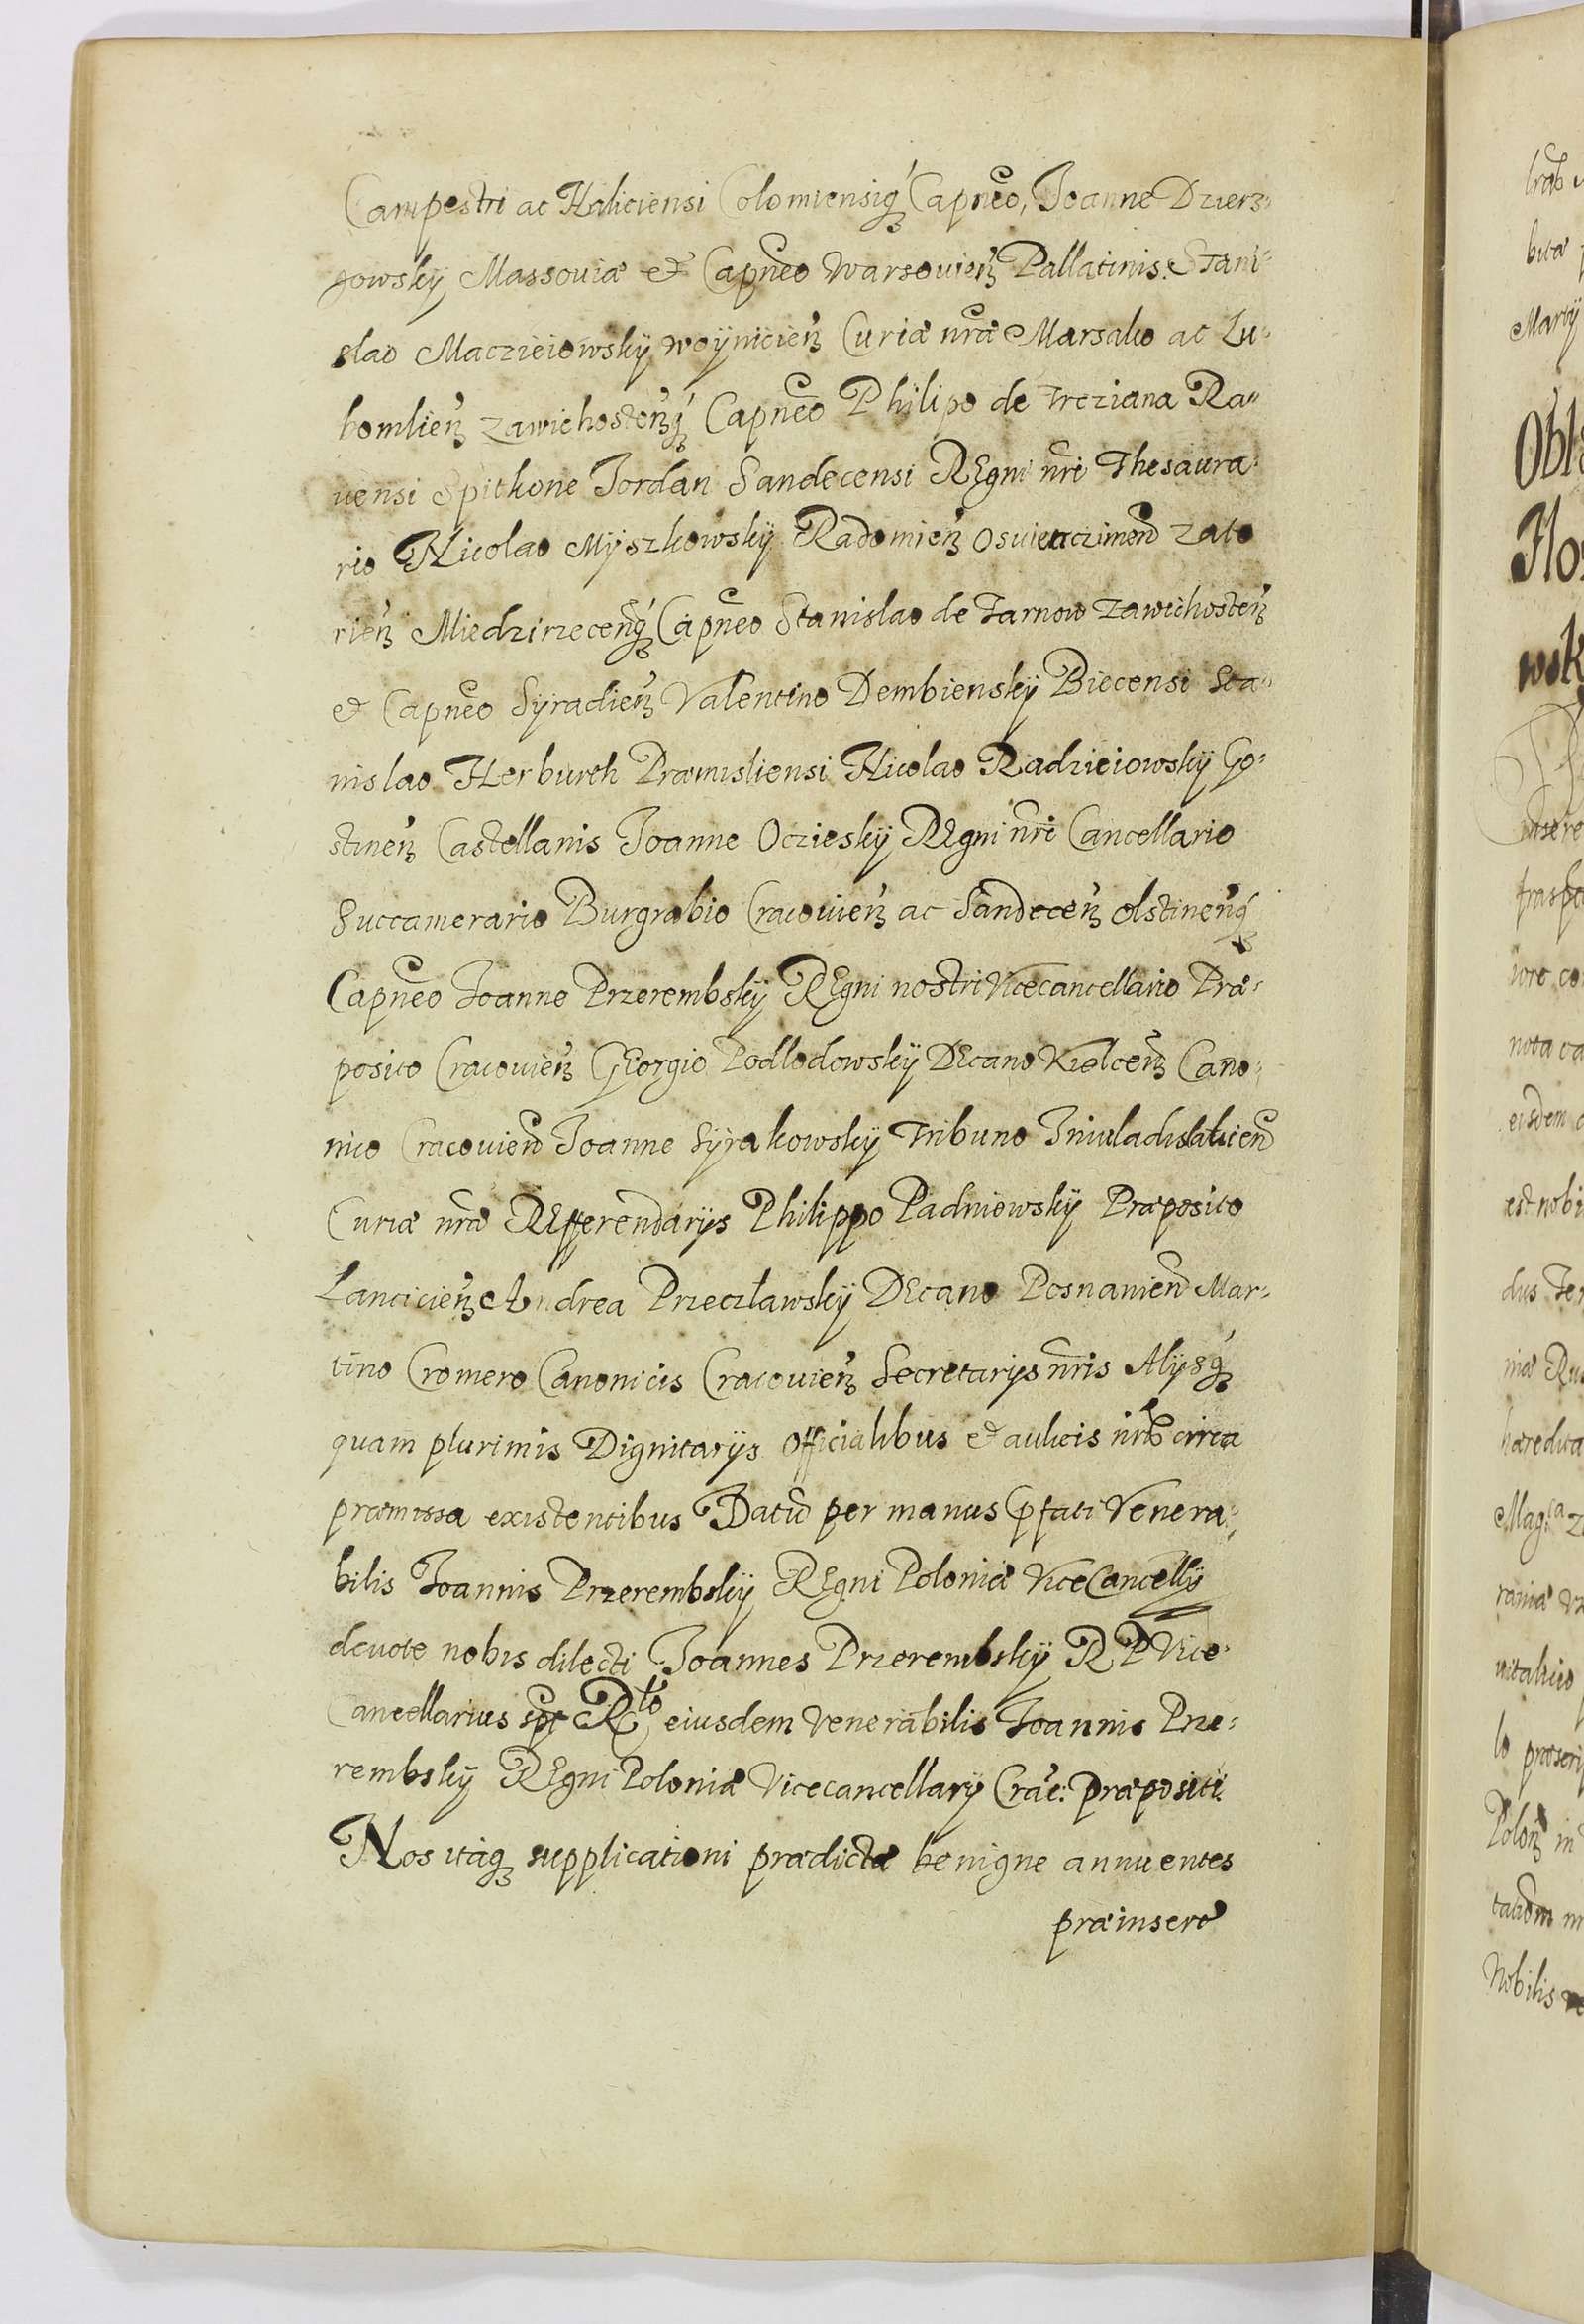 Campestri ac Haliciensi Colomiensiq́ꝫ Capneo, Joanne Dzierz-
gowskÿ Massoviæ et Capneo Warsovieñ Pallatinis. Stani-
slao Maczieiowskÿ woÿnicieñ Curiæ nræ Marsalco ac Lu-
bomlieñ zawichosteñq́ꝫ Capneo Philipo de Trcziana Ra-
uensi Spitkone Jordan Sandecensi REgni nri Thesaura-
rio Nicolao Mÿszkowskÿ Radomieñ Osuieczimen Zato
rieñ Miedzirzeceñq́ꝫ Capneo Stanislao de Tarnow zawichosteñ
et Capneo Sÿradieñ Valentino Dembienskÿ Biecensi Sta-
nislao Herburth Præmisliensi Nicolao Radzieiowskÿ Go-
stineñ Castellanis Joanne Oczieskÿ REgni nri Cancellario
Succamerario Burgrabio Cracovieñ ac Sandeceñ olstineñq́ꝫ
Capneo Joanne Przerembskÿ REgni nostri Vicecancellario Præ-
posito Cracouieñ GEorgio Podlodowskÿ DEcano Kielceñ Cano-
nico Cracouien Joanne Sÿrakowskÿ Tribuno Iniuladislauien
Curiæ nræ REfferendarÿs Philippo Padniowskÿ Præposito
Lancicieñ Andrea Przeczlawskÿ DEcano Posnanien Mar-
tino Cromero Canonicis Cracouieñ Secretarÿs nris Alÿsq́ꝫ
quam plurimis Dignitarÿs Officialibus et aulicis nrīs circa
præmissa existentibus Datū per manus Pfati Venera-
bilis Joannis Przerembskÿ REgni Poloniæ ViceCancellÿ
devote nobis dilecti Joannes Przerembskÿ R P Vice-
Cancellarius spt Rlᵗᵒ eiusdem Venerabilis Joannis Prze-
rembskÿ REgni Poloniæ Vicecancellarÿ Crac: Præpositi
Nos itaqꝫ supplicationi prædictæ benigne annuentes
præinsero